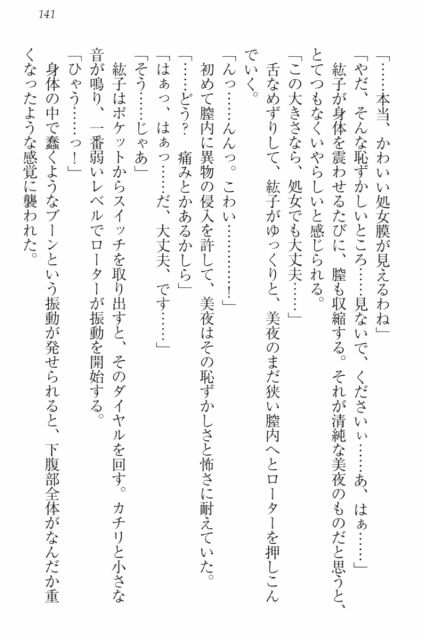 141
「……本当、かわいい処女膜が見えるわね」
「やだ、そんな恥ずかしいところ……見ないで、くださいぃ……あ、はぁ……」
紘子が身体を震わせるたびに、膣も収縮する。それが清純な美夜のものだと思うと、
とてつもなくいやらしいと感じられる。
「この大きさなら、処女でも大丈夫……」
舌なめずりして、紘子がゆっくりと、美夜のまだ狭い膣内へとローターを押しこん
でいく。
「んっ……んんっ。こわい…………！」
初めて膣内に異物の侵入を許して、美夜はその恥ずかしさと怖さに耐えていた。
「……どう？　痛みとかあるかしら」
「はぁっ、はぁっ……だ、大丈夫、です……」
「そう……じゃあ」
紘子はポケットからスイッチを取り出すと、そのダイヤルを回す。カチリと小さな
音が鳴り、一番弱いレベルでローターが振動を開始する。
「ひゃう……っ！」
身体の中で蠢くようなブーンという振動が発せられると、下腹部全体がなんだか重
くなったような感覚に襲われた。